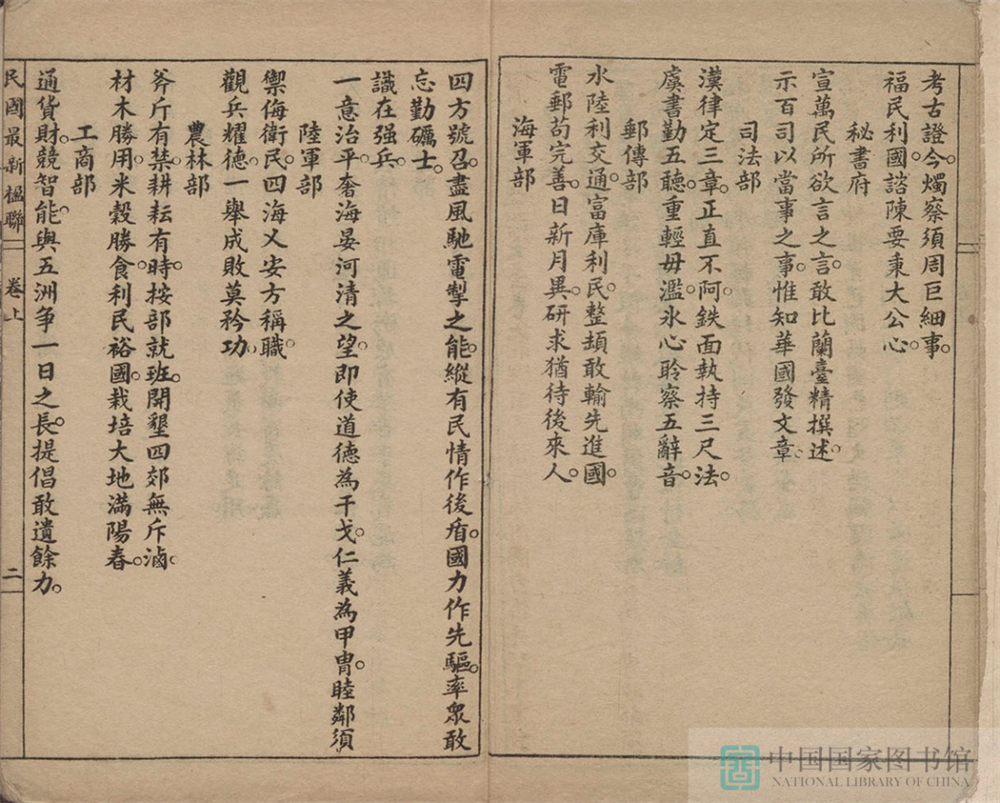 考古證今。燭察須周巨細事。
福民利國。諮陳要秉大公心。
秘書府
宣萬民所欲言之言。敢比蘭臺精撰述。
示百司以當事之事。惟知華國發文章。
司法部
漢律定三章。正直不阿。鉄面執持三尺法。
虞書勤五聽。重輕毋濫。氷心聆察五辭音。
郵傳部
水陸利交通。富庫利民。整頓敢輸先進國。
電郵苟完善。日新月異。研求猶待後來人。
海軍部
四方號召。盡風馳電掣之能。縱有民情作後盾。國力作先驅。率衆敢
忘勤礪士。
識在强兵。
一意治平。奮海晏河清之望。即使道德為干戈。仁義為甲冑。睦鄰須
陸軍部
禦侮衛民。四海乂安方稱職。
觀兵耀德。一舉成敗莫矜功。
農林部
斧斤有禁。耕耘有時。按部就班。開墾四郊無斥滷。
材木勝用。米穀勝食。利民裕國。栽培大地滿陽春。
工商部
通貨財。競智能。與五洲争一日之長。提倡敢遺餘力。
民國最新楹聯
卷上
二
中国国家图书馆
NATIONAL LIBRARY OF CHINA